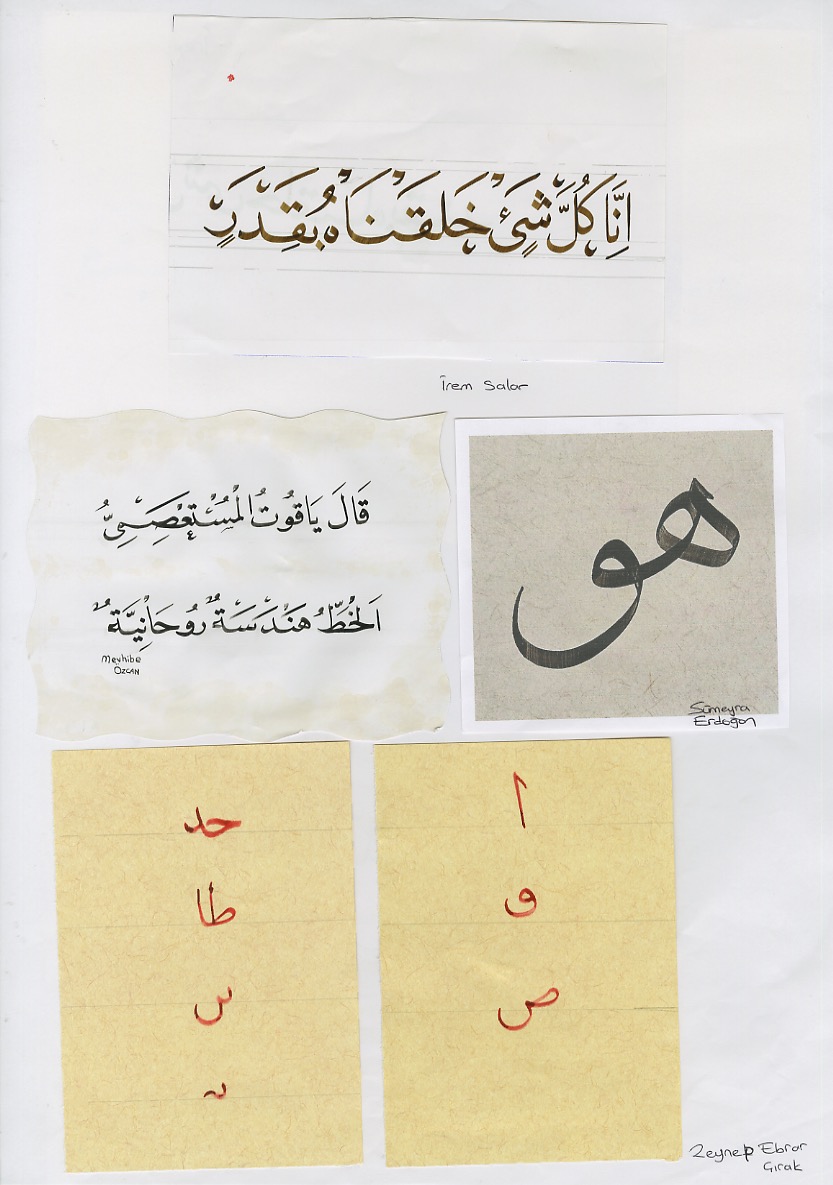 اِنَّا كُلَّ شَیْءٍ خَلَقْنَاهُ بِقَدَرٍ
İrem Salar
قَالَ يَاقُوتُ الْمُسْتَعْصِمِيُّ
اَلْخَطُّ هَنْدَسَةٌ رُوحَانِيَّةٌ
Mevhibe
ÖZCAN
هو
Sümeyra
Erdoğan
حد
طا
س
ا
و
ص
Zeynep Ebrar
Gırak